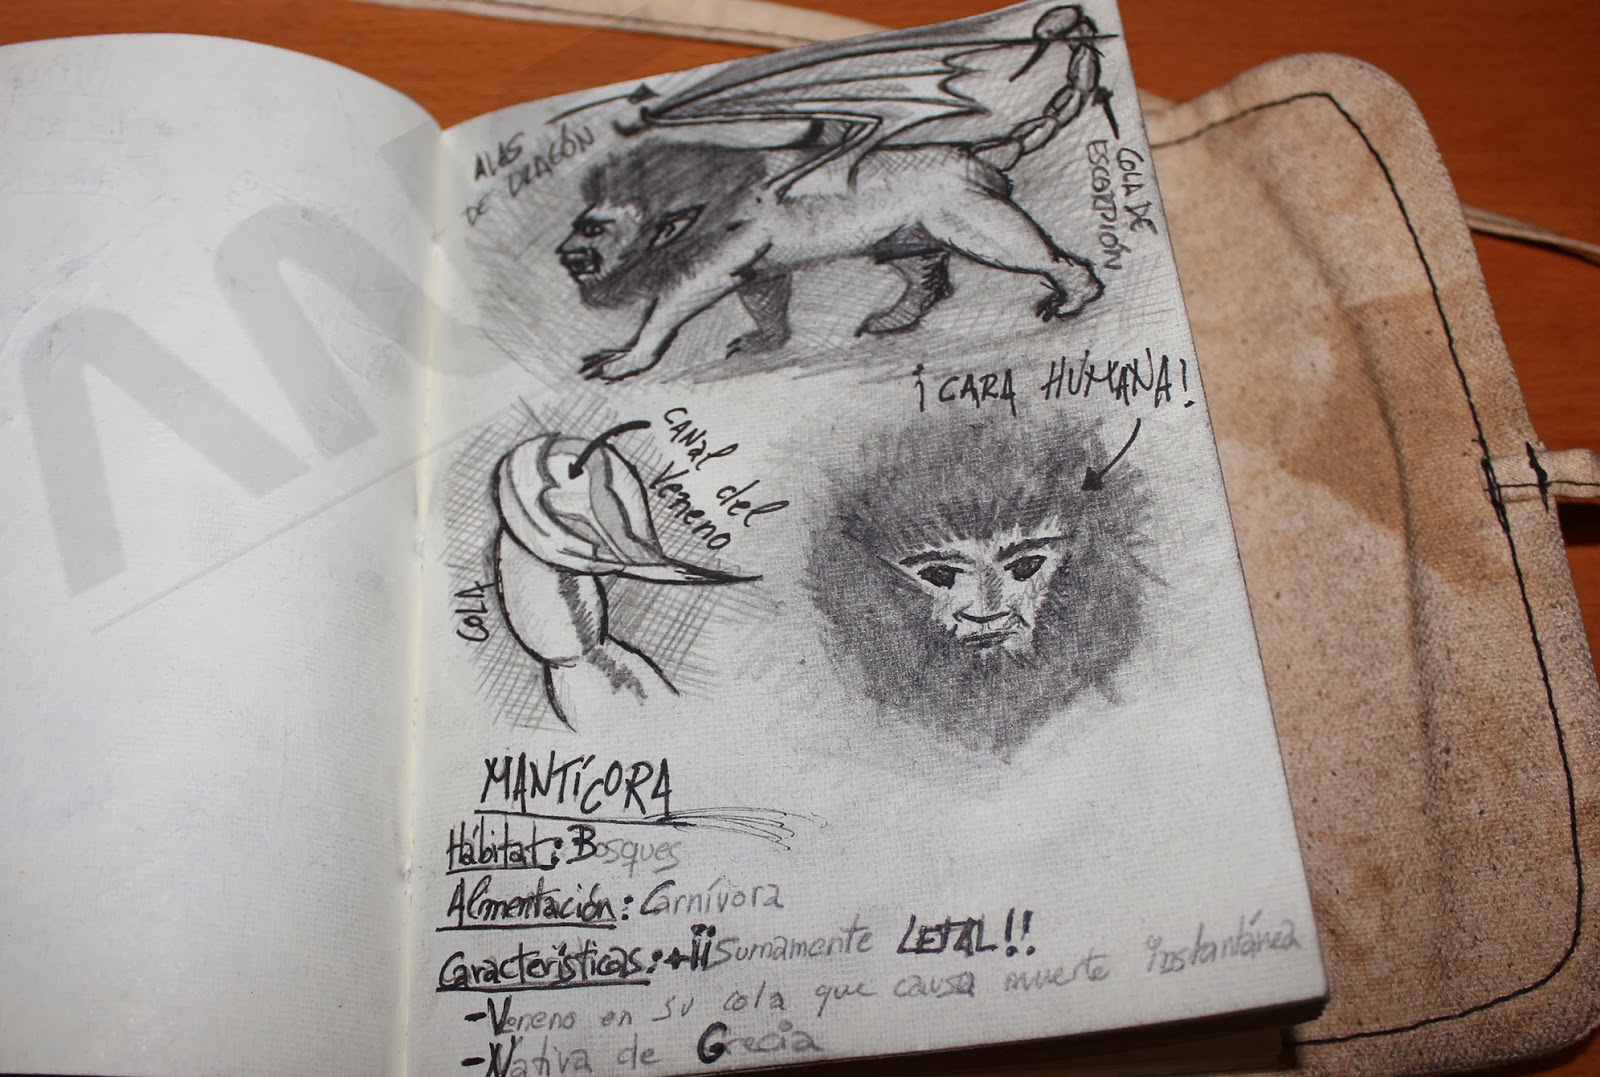 ALAS
DE DRAGÓN
COLA DE
ESCORPIÓN
¡CARA HUMANA!
CANAL del
Veneno
COLA
MANTÍCORA
Hábitat: Bosques
Alimentación: Carnívora
Características: +¡¡Sumamente LETAL!!
-Veneno en su cola que causa muerte instantánea
-Nativa de Grecia